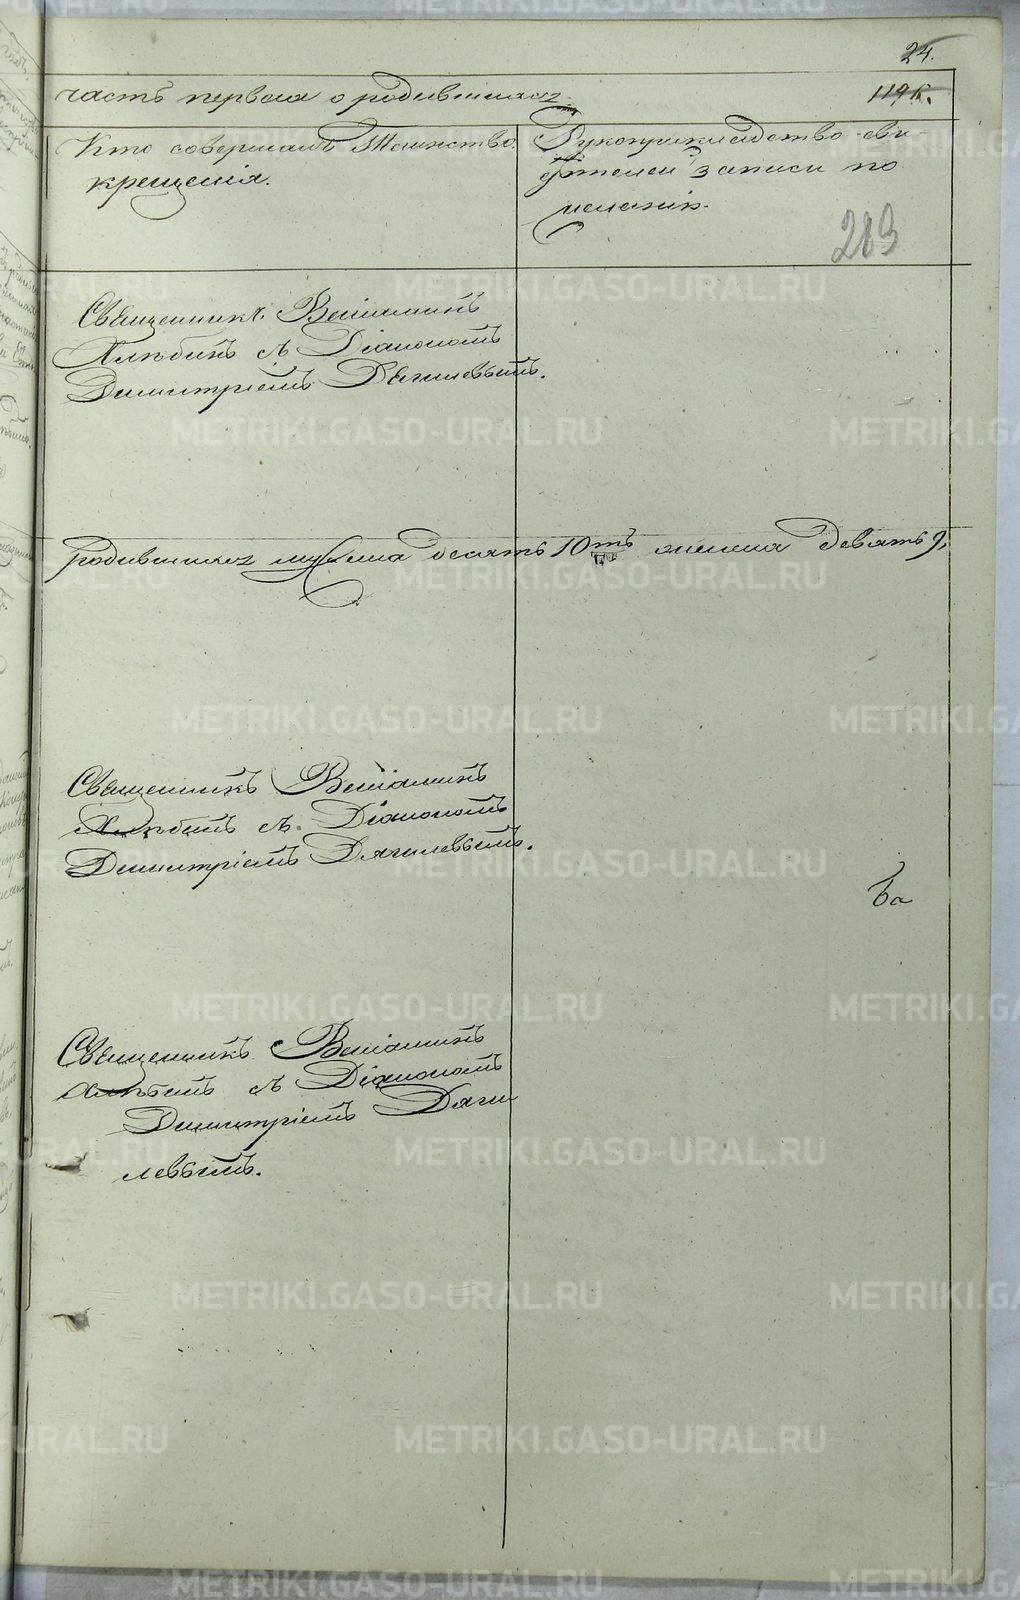 24.
часть первая о родившихся.
119 К.
Кто совершалъ Таинство
крещенія.
Рукоприкладство сви-
дѣтелей записи по
желанію.
283
Священникъ Веніаминъ
Хлѣбинъ съ Діакономъ
Димитріемъ Дягилевымъ.
родившихся мужска десять 10ть женска девять 9,
Священникъ Веніаминъ
Хлѣбинъ съ Діакономъ
Димитріемъ Дягилевымъ.
Священникъ Веніаминъ
Хлѣбинъ съ Діакономъ
Димитріемъ Дяги
левымъ.
METRIKI.GASO-URAL.RU